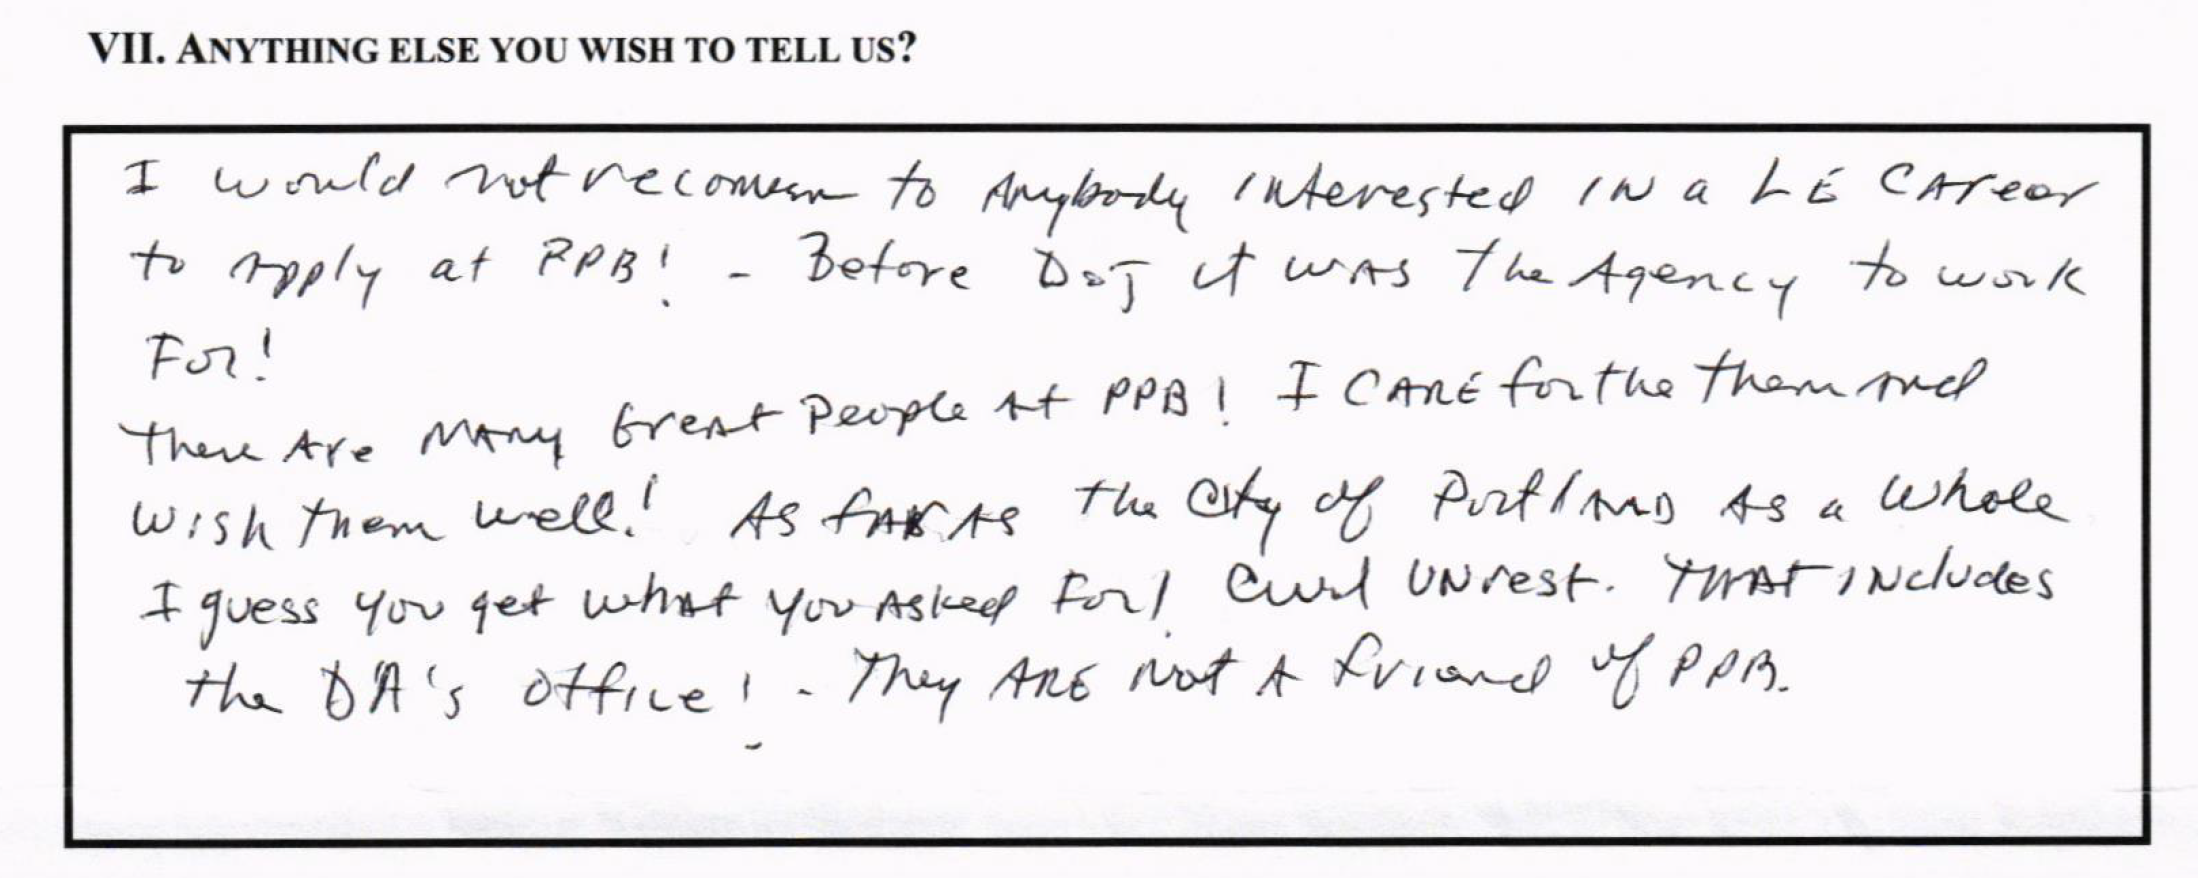 VII. ANYTHING ELSE YOU WISH TO TELL US?
I would not recomen to Anybody interested IN a LE CAreer
to Apply at PPB! - Before DOJ it WAS The Agency to work
For!
There Are MANy Great People At PPB! I CARE for the them and
WISH them well! As fAR As the City of PortlAND As a whole
I guess you get what you Asked For! Civil UNrest. THAT INcludes
the DA's office! - They ARE Not A friend of PPB.